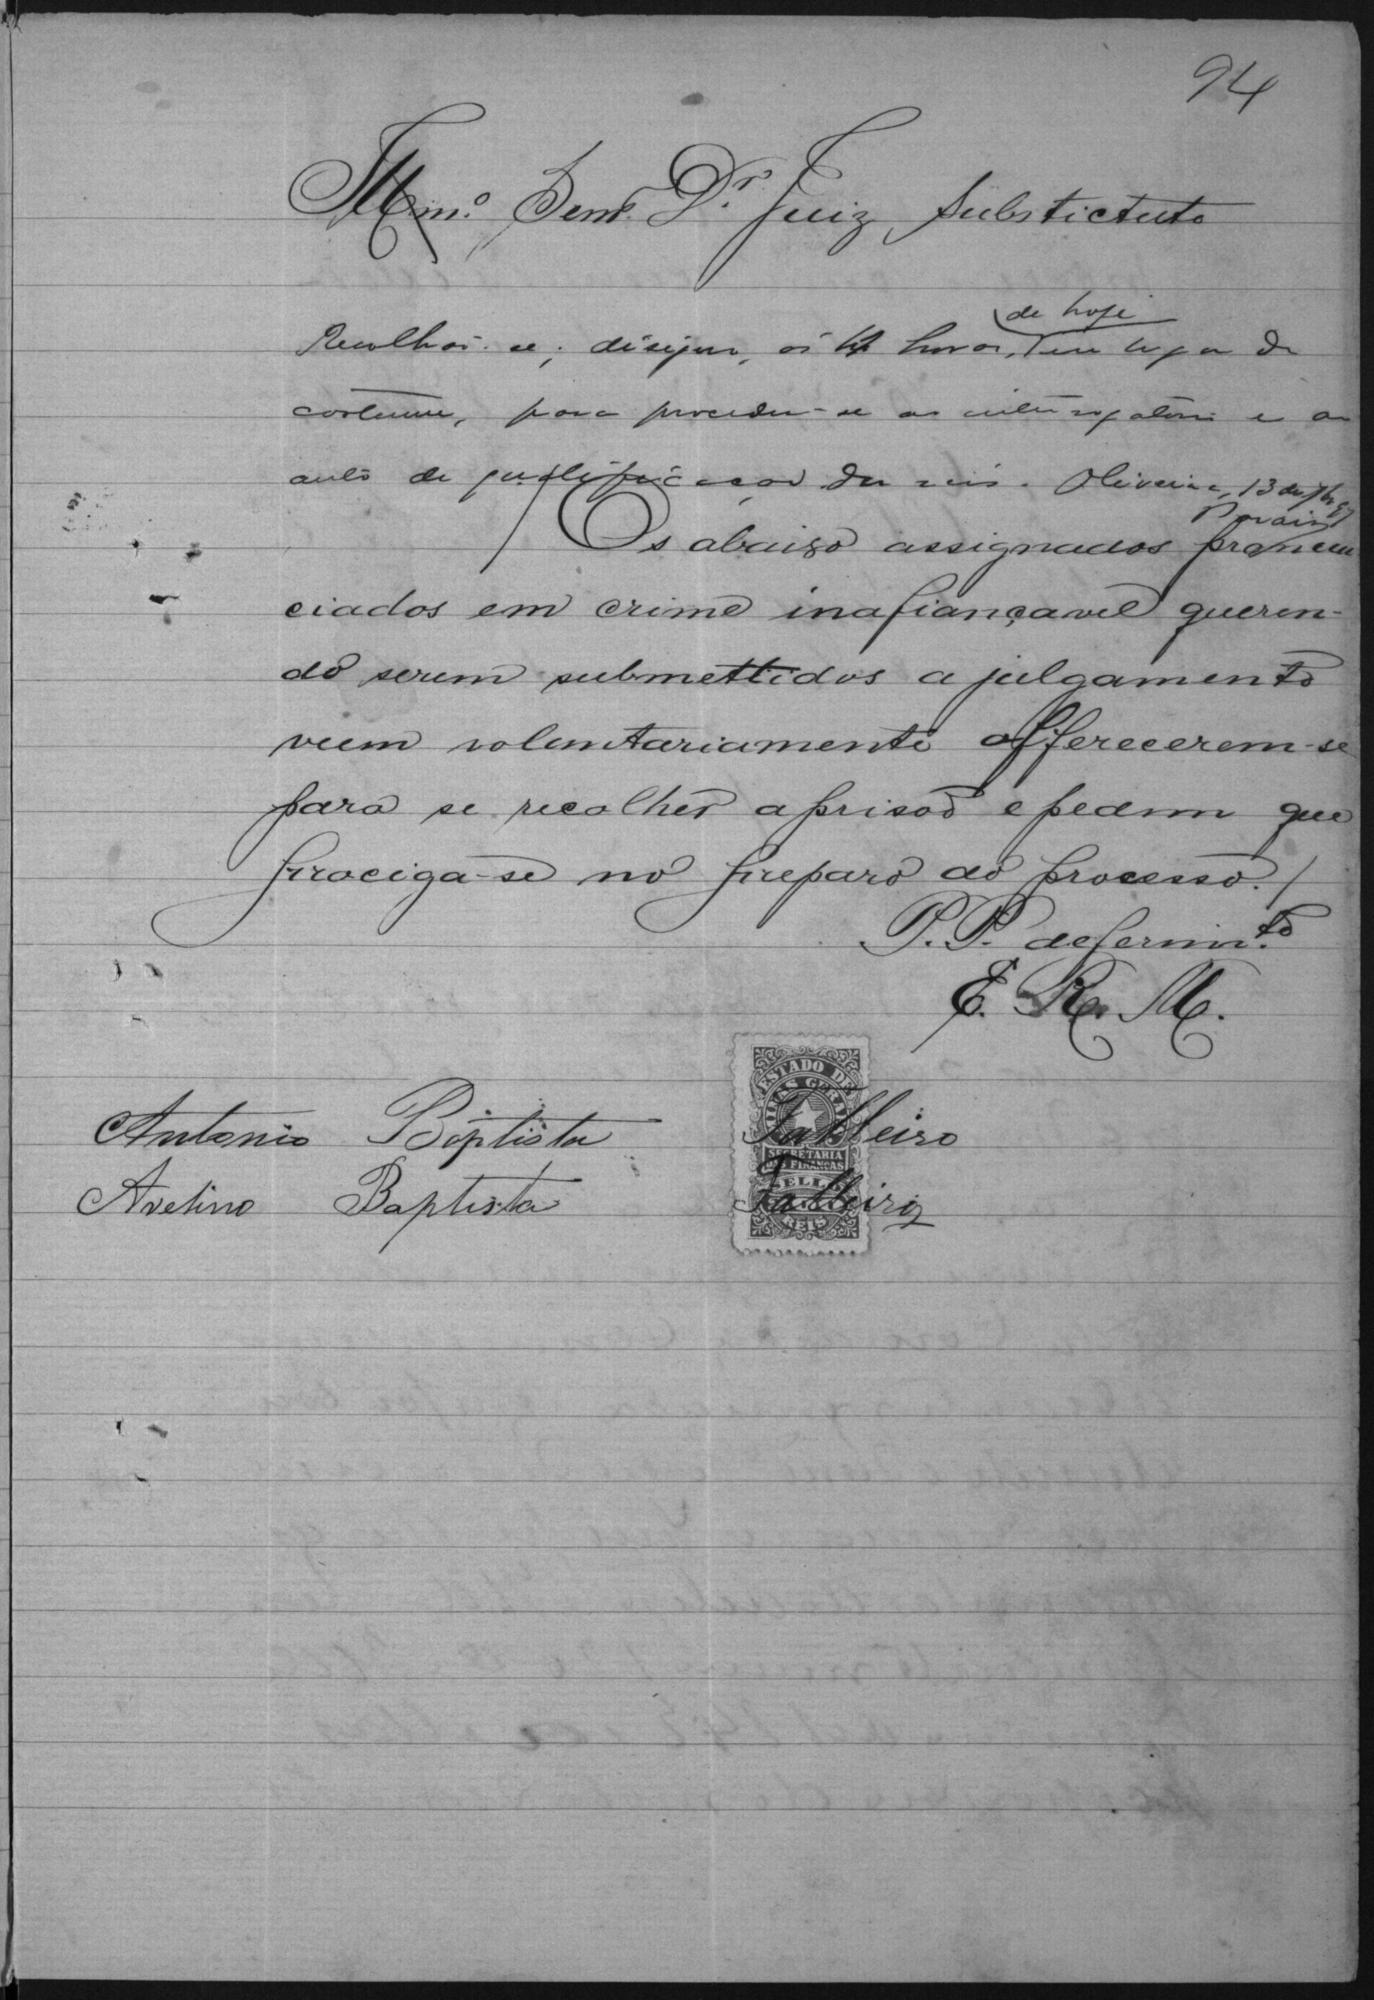 94
Illmo. Senr. Dr. Juiz Substictuto
de hoje
Recolhão-se; designo, ás horas, em lugar do
costume, para proceder-se ao interrogatorio e ao
auto de qualificação dos reos. Oliveira, 13 de
Os abaixo assignados pronun
ciados em crime inafiançavel queren-
do serem submettidos a julgamento
veem voluntariamente offerecerem-se
para se recolher a prisão e pedem que
prociga-se no preparo do processo./
P. P. deferim.to
E. R. M.
ESTADO DE
MINAS GERAES
SECRETARIA
DAS FINANÇAS
SELLO
REIS
Antonio Baptista Falleiro
Avelino Baptista Falleiro